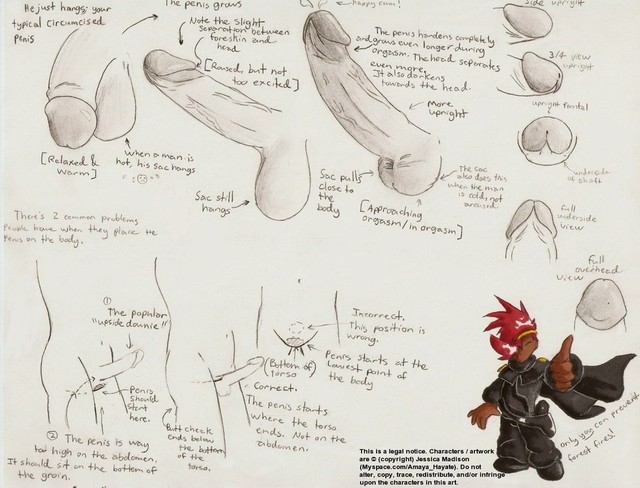 He just hangs; your
typical circumcised
penis
The penis grows
Note the slight
separation between
foreskin and
head
[Raised, but not
too excited]
happy cum!
The penis hardens completely
and grows even longer during
orgasm. The head separates
even more.
It also darkens
towards the head.
more
upright
side upright
3/4 view
upright
upright frontal
underside of
shaft
full
underside
view
full
overhead
view
[Relaxed &
warm]
when a man is
hot, his sac hangs
Sac still
hangs
Sac pulls
close to
the body
[Approaching
orgasm/in orgasm]
The sac
also does this
when the man
is cold, not
aroused.
There's 2 common problems
people have when they place the
penis on the body.
①
The popular
"upside downie"
Penis
should
start
here.
② The penis is way
too high on the abdomen.
It should sit on the bottom of
the groin.
Butt cheek
ends below
the bottom
of the
torso.
Incorrect.
This position is
wrong.
(Bottom of
torso)
Penis starts at the
lowest point of
the body
Correct.
The penis starts
where the torso
ends. Not on the
abdomen.
only you can prevent
forest fires!
This is a legal notice. Characters / artwork
are © (copyright) Jessica Madison
(Myspace.com/Amaya_Hayate). Do not
alter, copy, trace, redistribute, and/or infringe
upon the characters in this art.